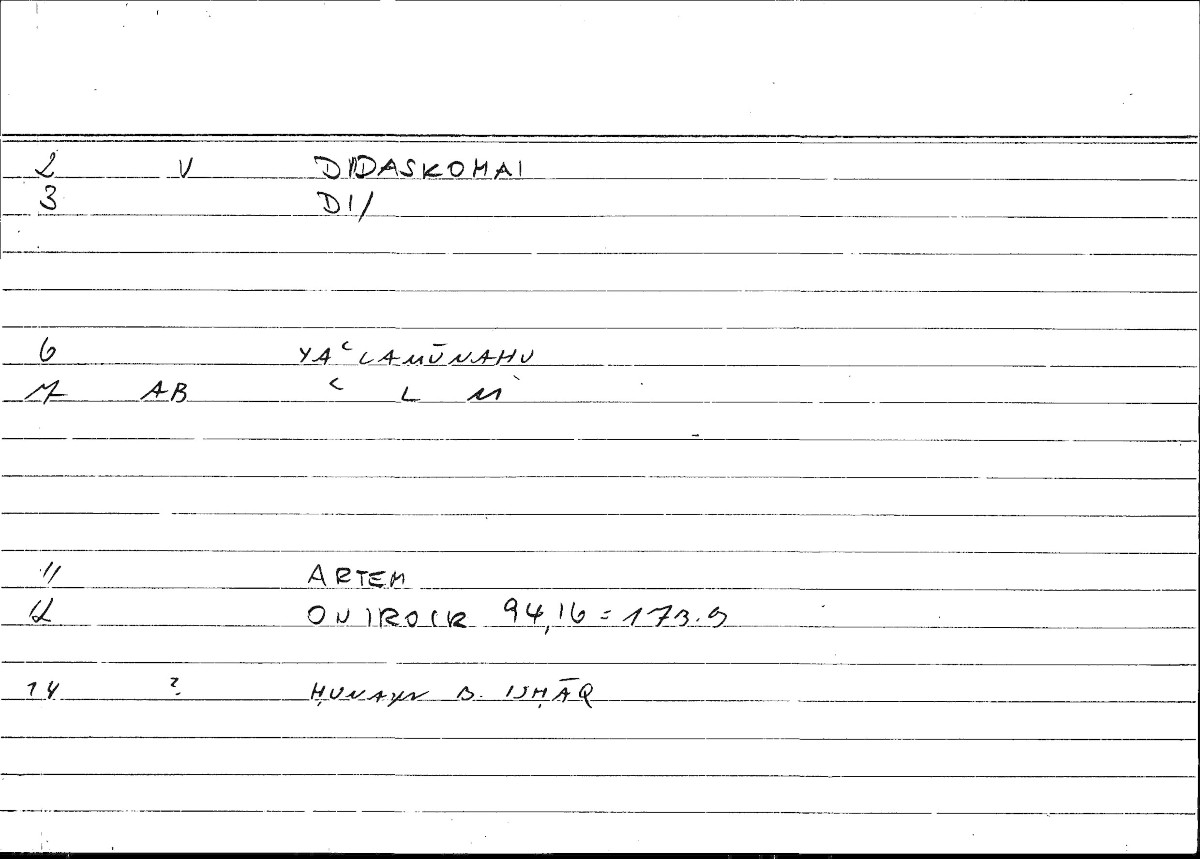 2 V DIDASKOMAI
3 DI/
6 YAʿLAMŪNAHU
7 AB ʿ L M
11 ARTEM
12 ONIROCR 94,16 = 173.9
14 ? ḤUNAYN B. ISḤĀQ